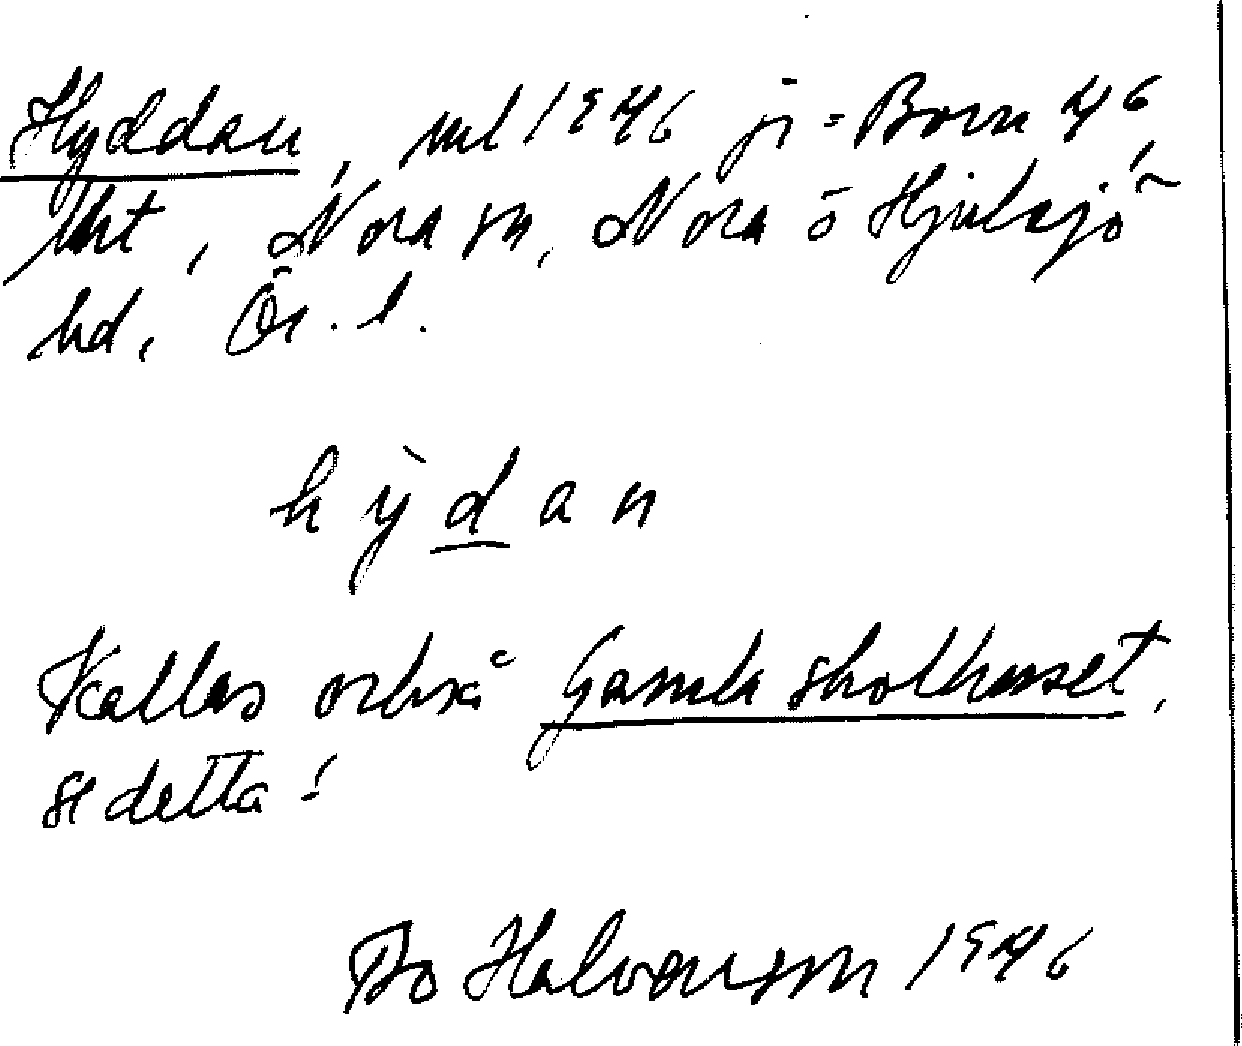 Hyddan, nel 1946 på Born 46,
hmt, Nora sn, Nora o Hjulsjö
hd, Ör. l.
hỳdan
Kallas också Gamla skolhuset,
se detta!
Bo Halvarsson 1946